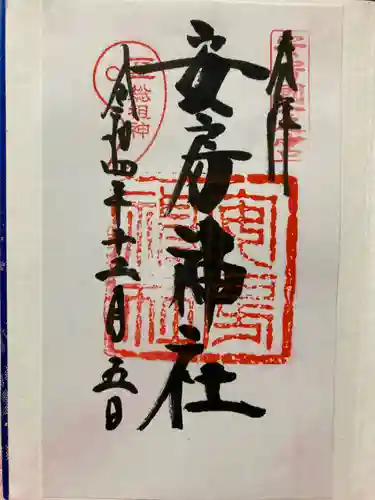 奉拝
安房神社
令和四年十二月五日
総祖神
安房神社